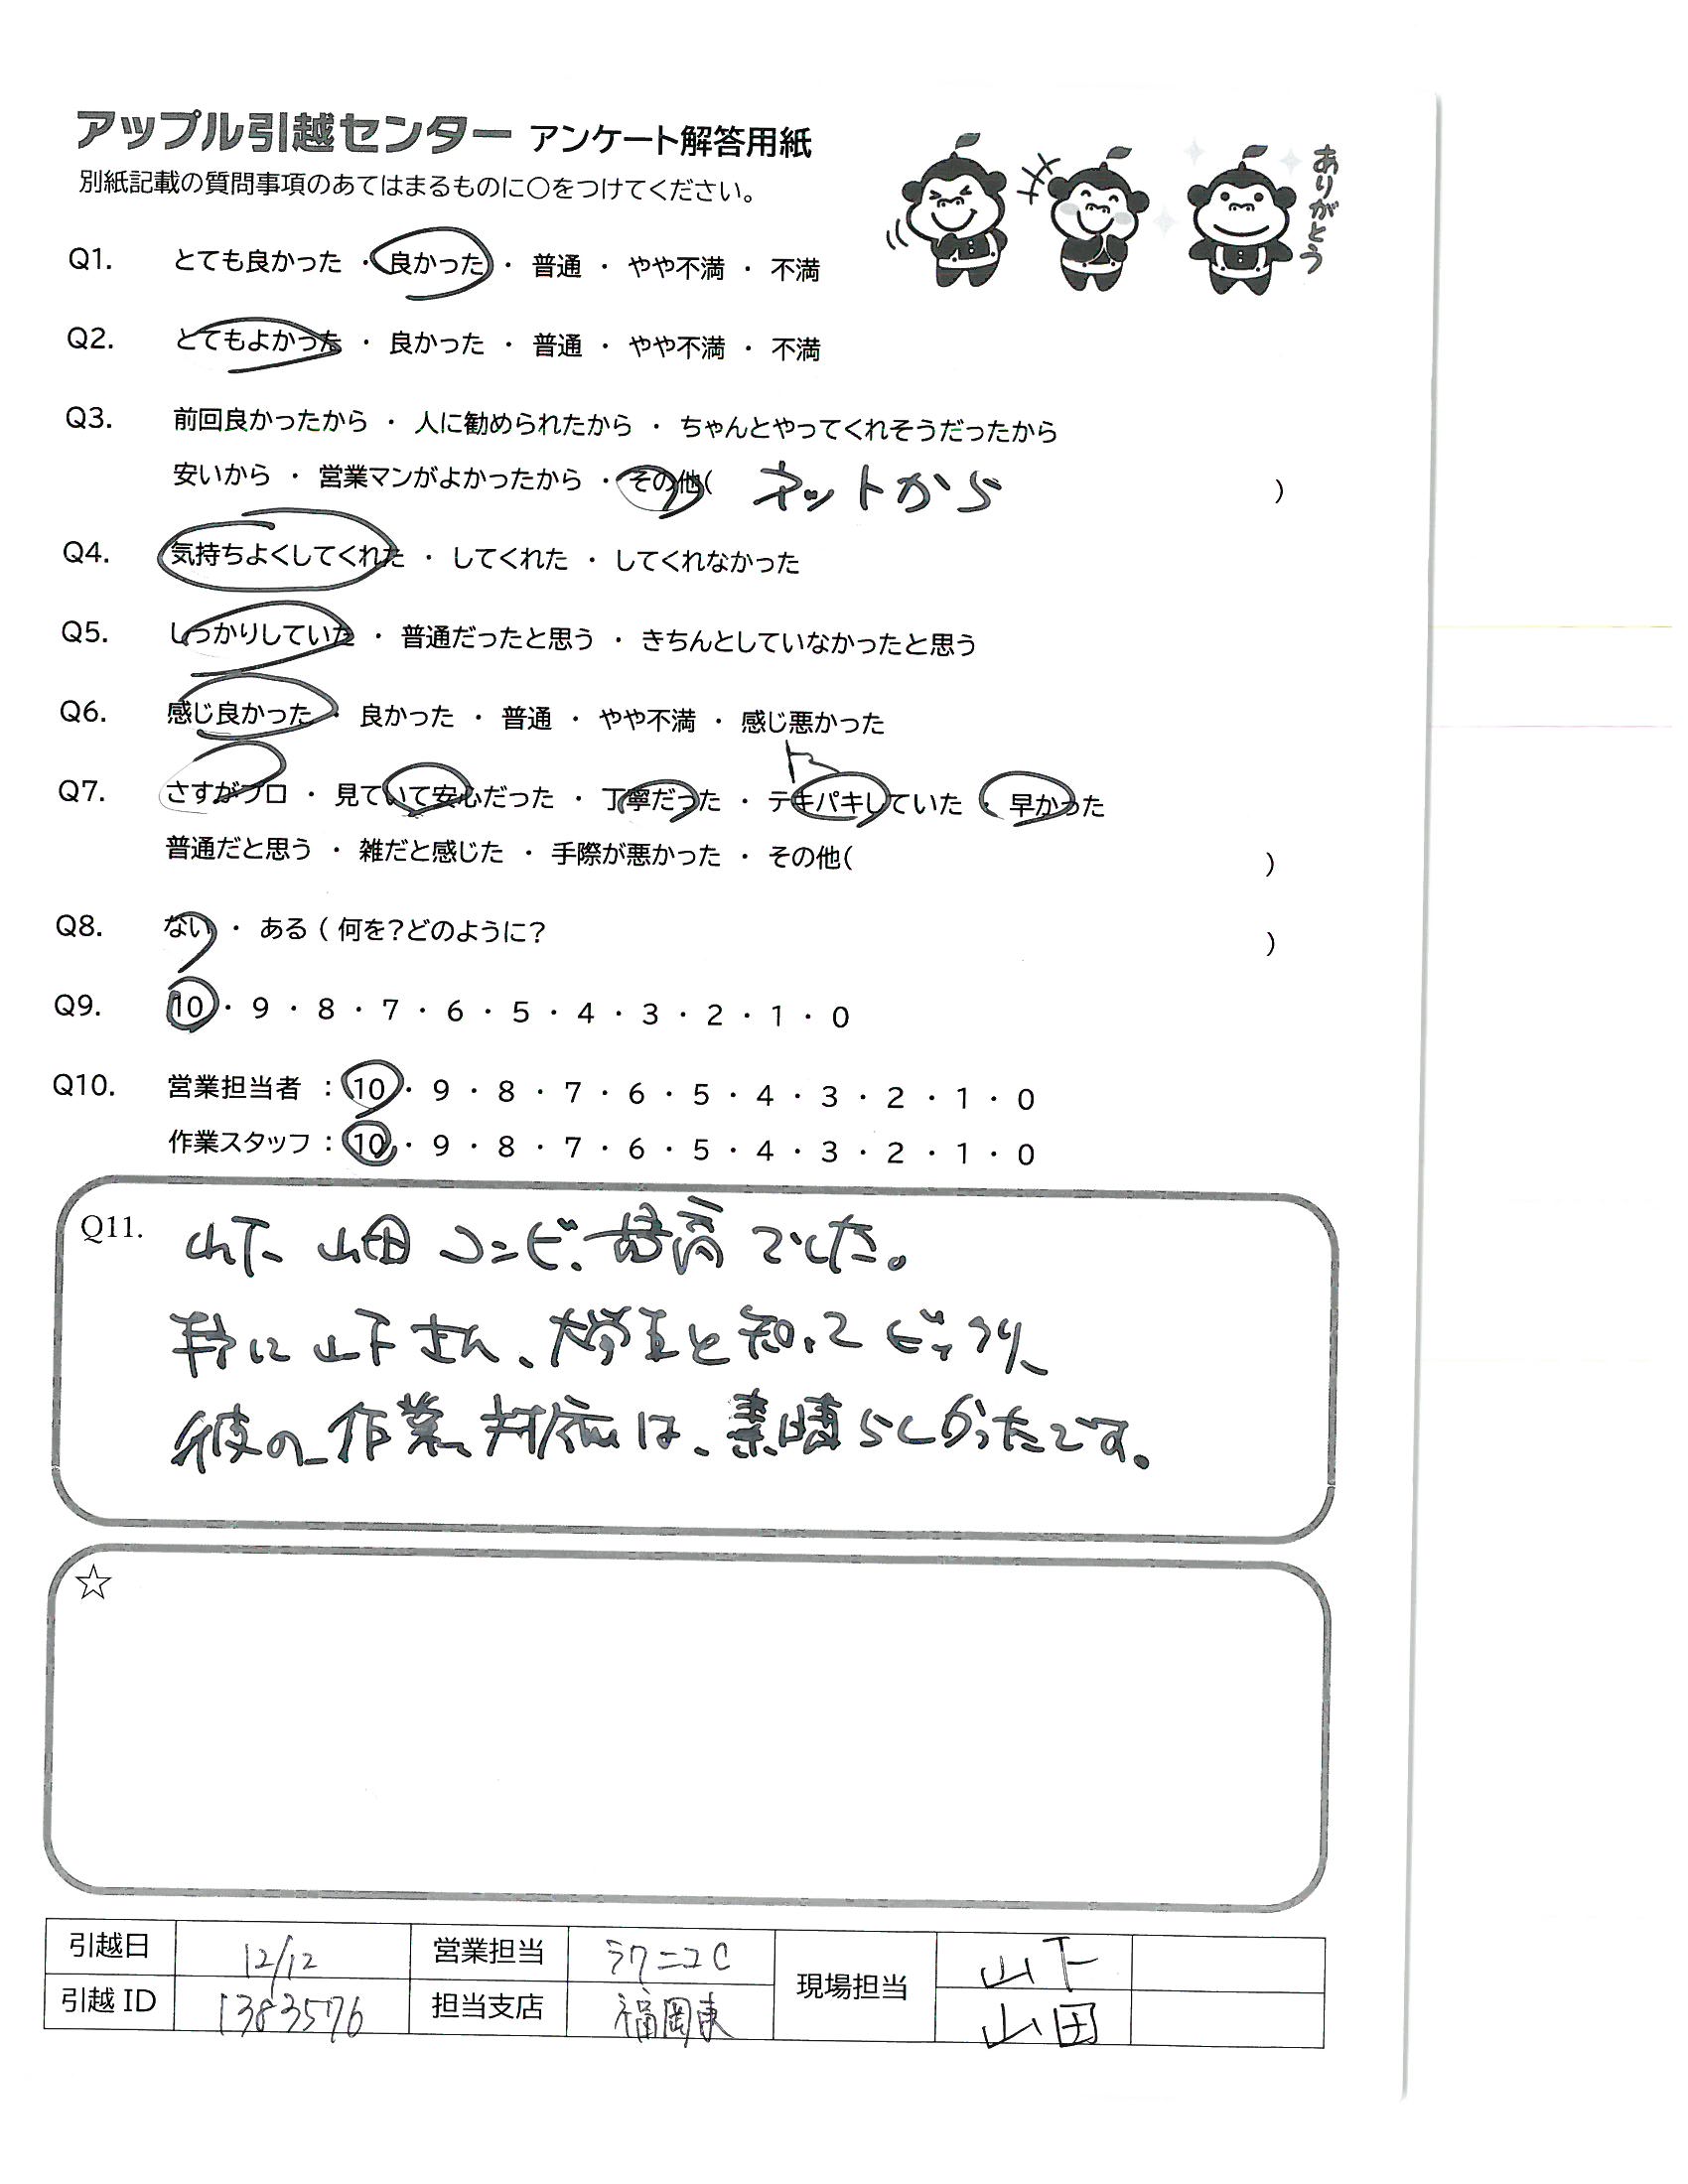 アップル引越センター アンケート解答用紙
別紙記載の質問事項のあてはまるものに○をつけてください。
ありがとう
Q1. とても良かった ・ 良かった ・ 普通 ・ やや不満 ・ 不満
Q2. とてもよかった ・ 良かった ・ 普通 ・ やや不満 ・ 不満
Q3. 前回良かったから ・ 人に勧められたから ・ ちゃんとやってくれそうだったから
安いから ・ 営業マンがよかったから ・ その他( ネットから )
Q4. 気持ちよくしてくれた ・ してくれた ・ してくれなかった
Q5. しっかりしていた ・ 普通だったと思う ・ きちんとしていなかったと思う
Q6. 感じ良かった ・ 良かった ・ 普通 ・ やや不満 ・ 感じ悪かった
Q7. さすがプロ ・ 見ていて安心だった ・ 丁寧だった ・ テキパキしていた ・ 早かった
普通だと思う ・ 雑だと感じた ・ 手際が悪かった ・ その他( )
Q8. ない ・ ある ( 何を?どのように? )
Q9. 10 ・ 9 ・ 8 ・ 7 ・ 6 ・ 5 ・ 4 ・ 3 ・ 2 ・ 1 ・ 0
Q10. 営業担当者 : 10 ・ 9 ・ 8 ・ 7 ・ 6 ・ 5 ・ 4 ・ 3 ・ 2 ・ 1 ・ 0
作業スタッフ : 10 ・ 9 ・ 8 ・ 7 ・ 6 ・ 5 ・ 4 ・ 3 ・ 2 ・ 1 ・ 0
Q11. 山下 山田 コンビ、最高でした。
特に山下さん、大学生と知ってビックリ、
彼の作業、対応は、素晴らしかったです。
☆
引越日 12/12 営業担当 ラクニコC 現場担当 山下
引越 ID 1383576 担当支店 福岡東 山田